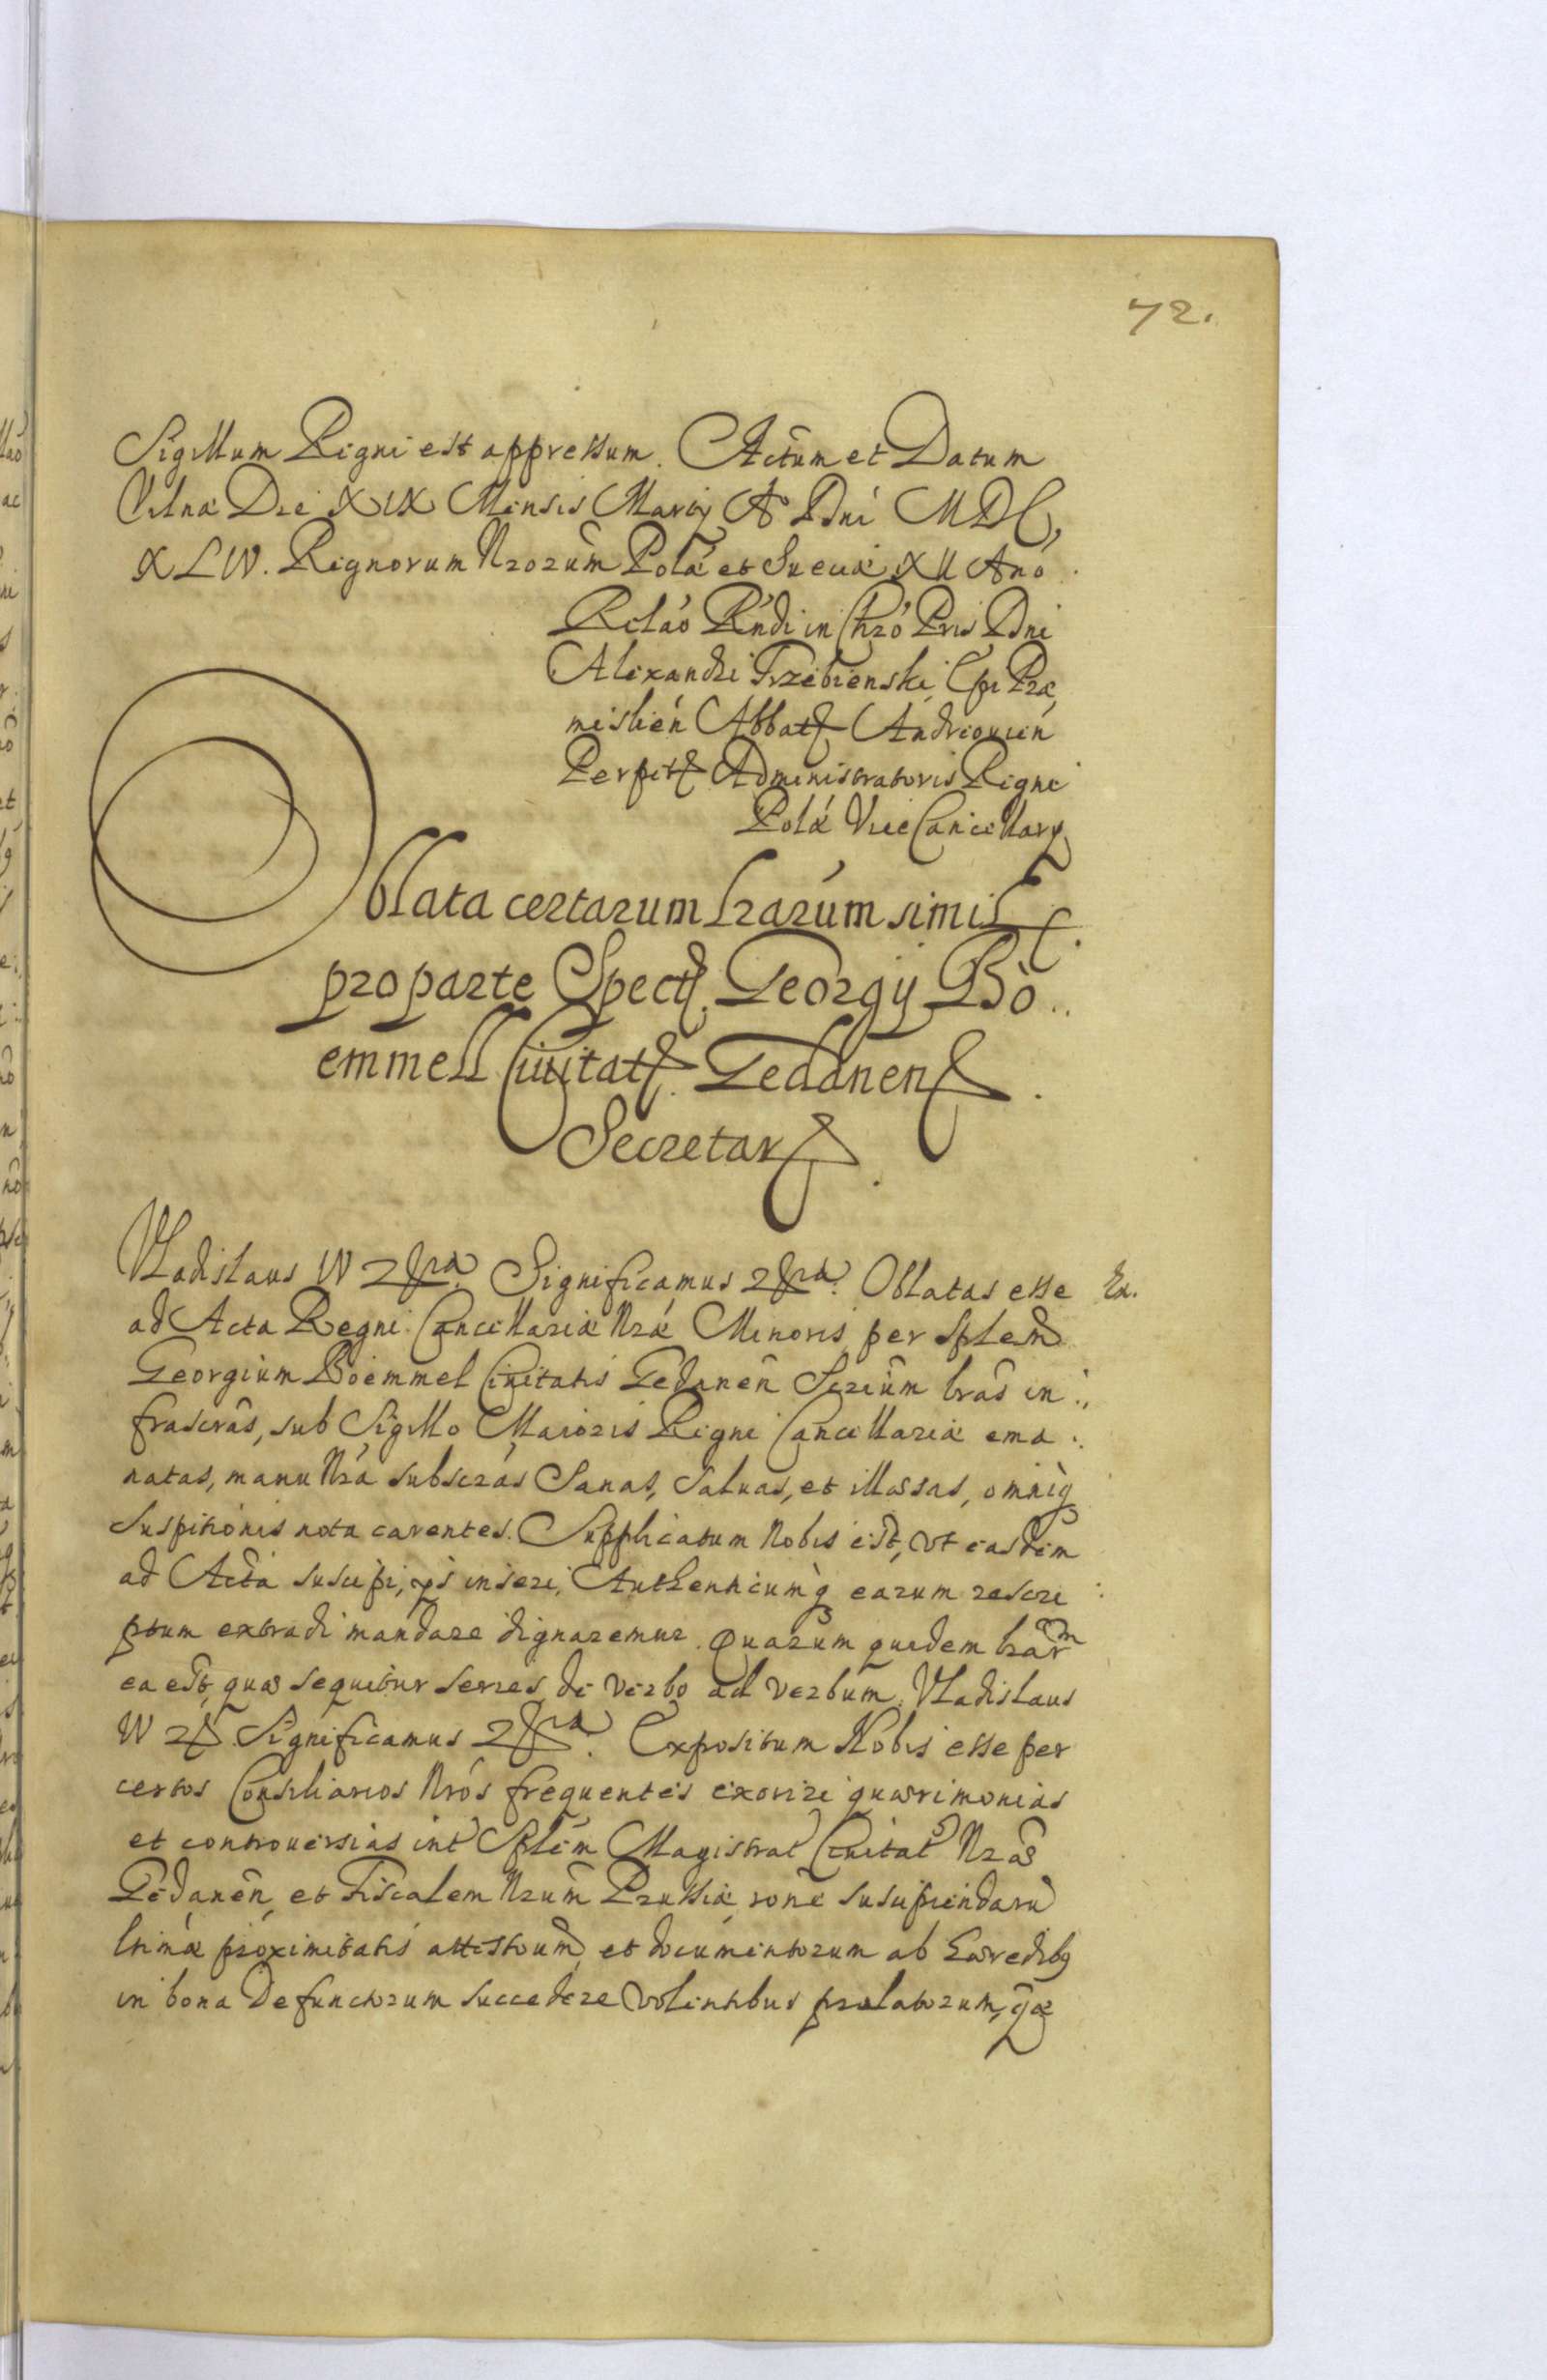 72.
Sigillum Regni est appressum. Actum et Datum
Vilnæ Die XIX Mensis Marty Aº Dni MDC,
XLIV. Regnorum Nrorum Polæ et Sueciæ XII Ano
Relao Rndi in Chro Pris Dni
Alexandri Trzebienski, Epi Præ,
mislien Abbatis Andreouien
Perpet Administratoris Regni
Polæ ViceCancellary
Oblata certarum lrarum simil
pro parte Spect. Georgy Bo..
emmell Ciuitat. Gedanen.
Secretar.
Vladislaus IV &ra. Significamus &ra. Oblatas esse
Ex.
ad Acta Regni Cancellariæ Nræ Minoris per Splem
Georgium Boemmel Ciuitatis Gedanen Scrium lras in:,
frascras, sub Sigillo Maioris Regni Cancellariæ ema:,
natas, manu Nra subscras Sanas, saluas, et illæsas, omniq
suspitionis nota carentes. Supplicatum Nobis est, vt easdem
ad Acta suscipi, ys inseri, Authenticumq earum rescri:
ptum extradi mandare dignaremur. Quarum quidem lrarm
ea est, quæ sequitur series de verbo ad verbum. Vladislaus
IV & Significamus &ra. Expositum Nobis esse per
certos Consiliarios Nros frequentes exoriri quærimonias
et controuersias int Splem Magistrat Ciuitat Nræ
Gedanen, et Fiscalem Nrum Prussiæ, rone suscipiendaru
ltimæ proximitatis attestoum, et documentorum ab hæredibq
in bona Defunctorum succedere Volentibus prælatorum, qæ